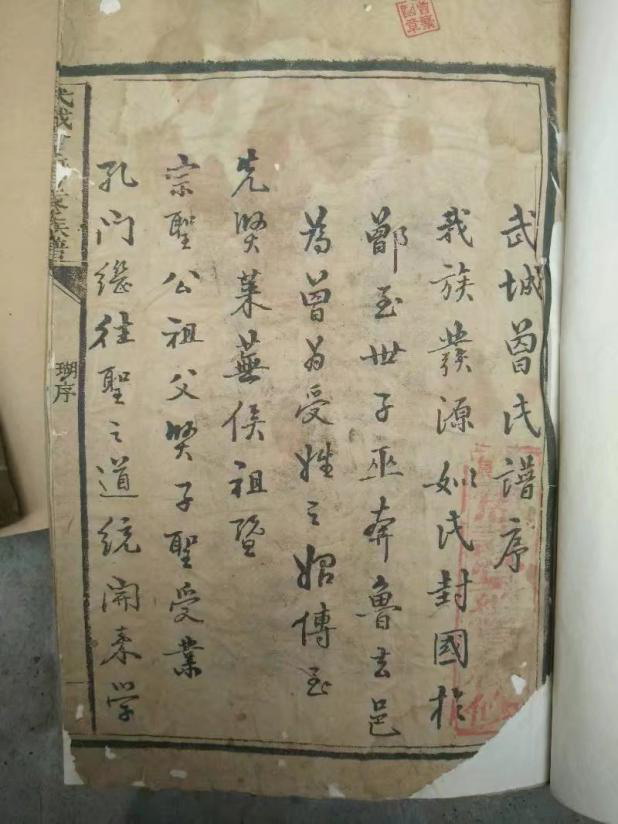 武城曾氏譜序
我族發源姒氏封國於
鄫至世子巫奔魯去邑
為曾為受姓之始傳至
先賢萊蕪侯祖暨
宗聖公祖父賢子聖受業
孔門繼往聖之道統開來學
武城曾氏家族譜
瑚序